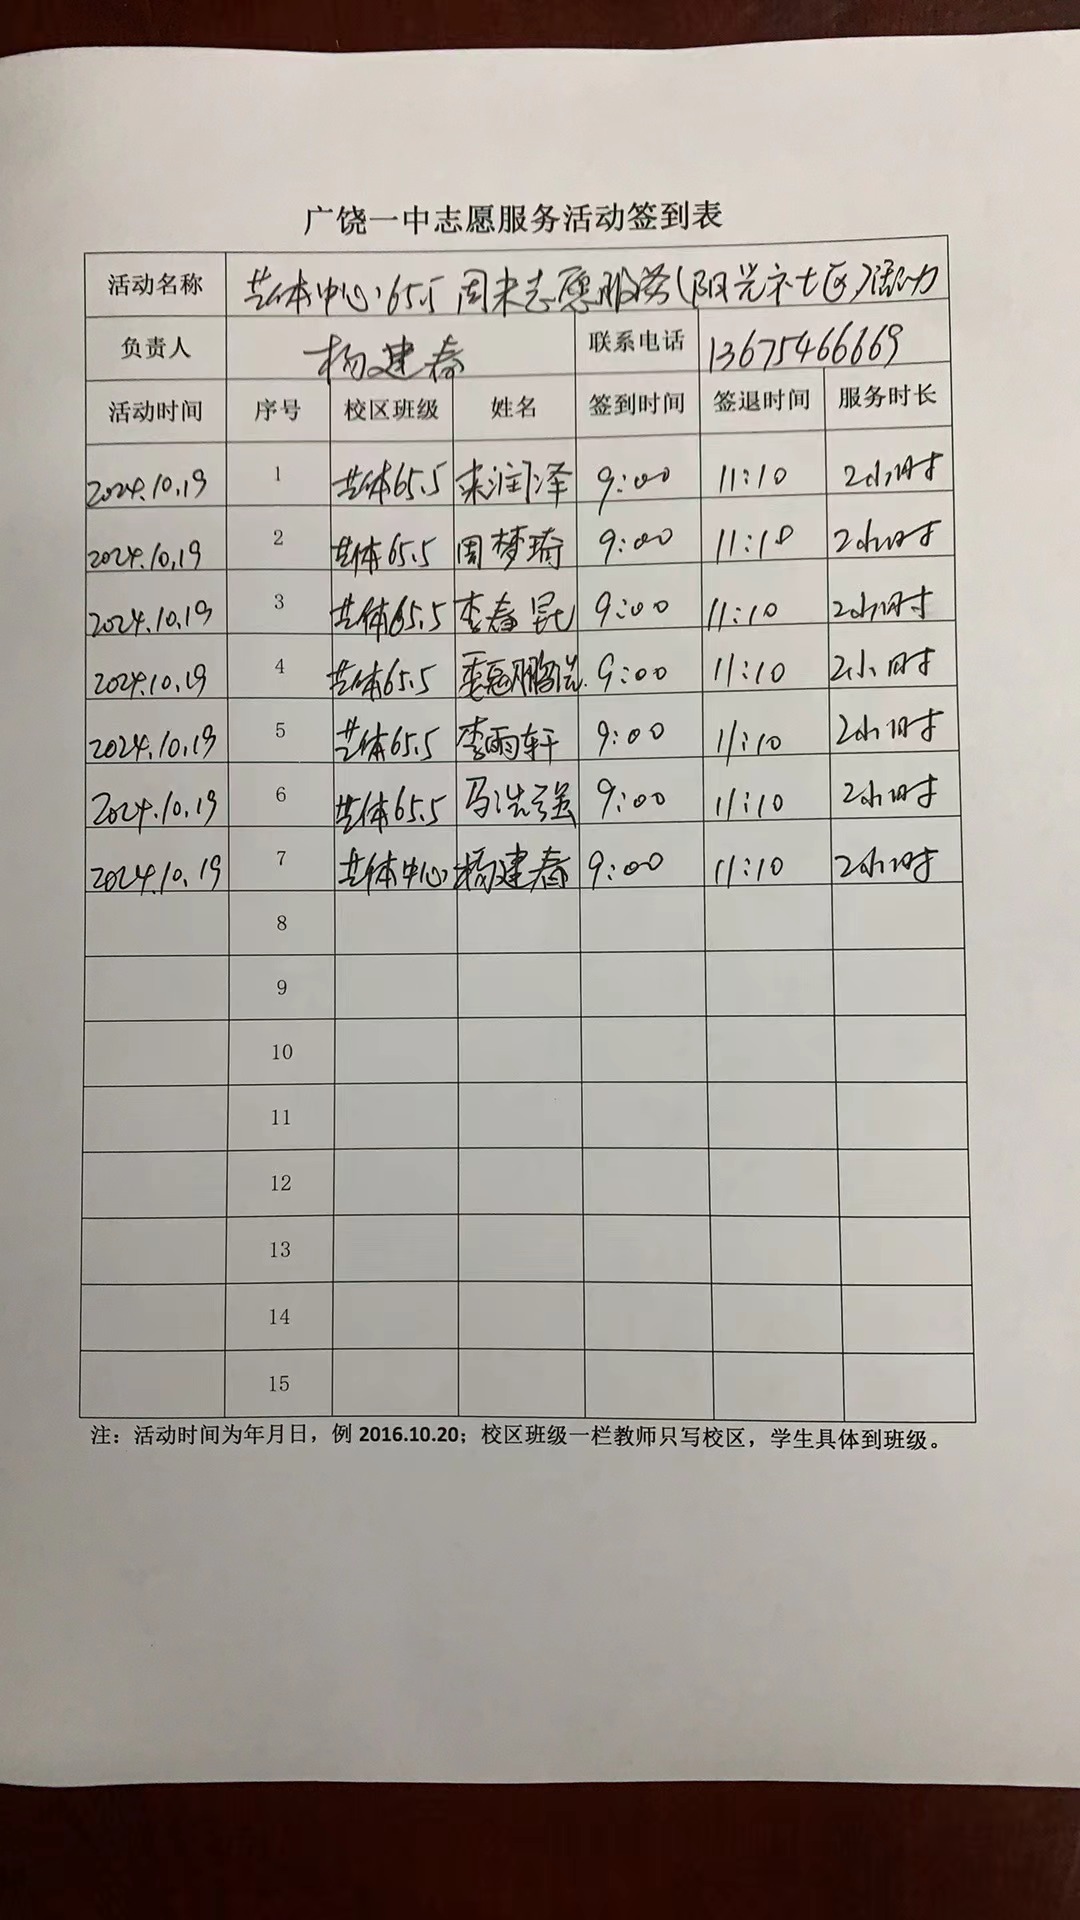 广饶一中志愿服务活动签到表
活动名称 艺体中心65.5周末志愿服务(阳光社区)活动
负责人 杨建春 联系电话 13675466669
活动时间 序号 校区班级 姓名 签到时间 签退时间 服务时长
2024.10.19 1 艺体65.5 来润泽 9:00 11:10 2小时
2024.10.19 2 艺体65.5 周梦琦 9:00 11:10 2小时
2024.10.19 3 艺体65.5 李春昆 9:00 11:10 2小时
2024.10.19 4 艺体65.5 9:00 11:10 2小时
2024.10.19 5 艺体65.5 李雨轩 9:00 11:10 2小时
2024.10.19 6 艺体65.5 马浩强 9:00 11:10 2小时
2024.10.19 7 艺体中心 杨建春 9:00 11:10 2小时
8
9
10
11
12
13
14
15
注：活动时间为年月日，例 2016.10.20；校区班级一栏教师只写校区，学生具体到班级。